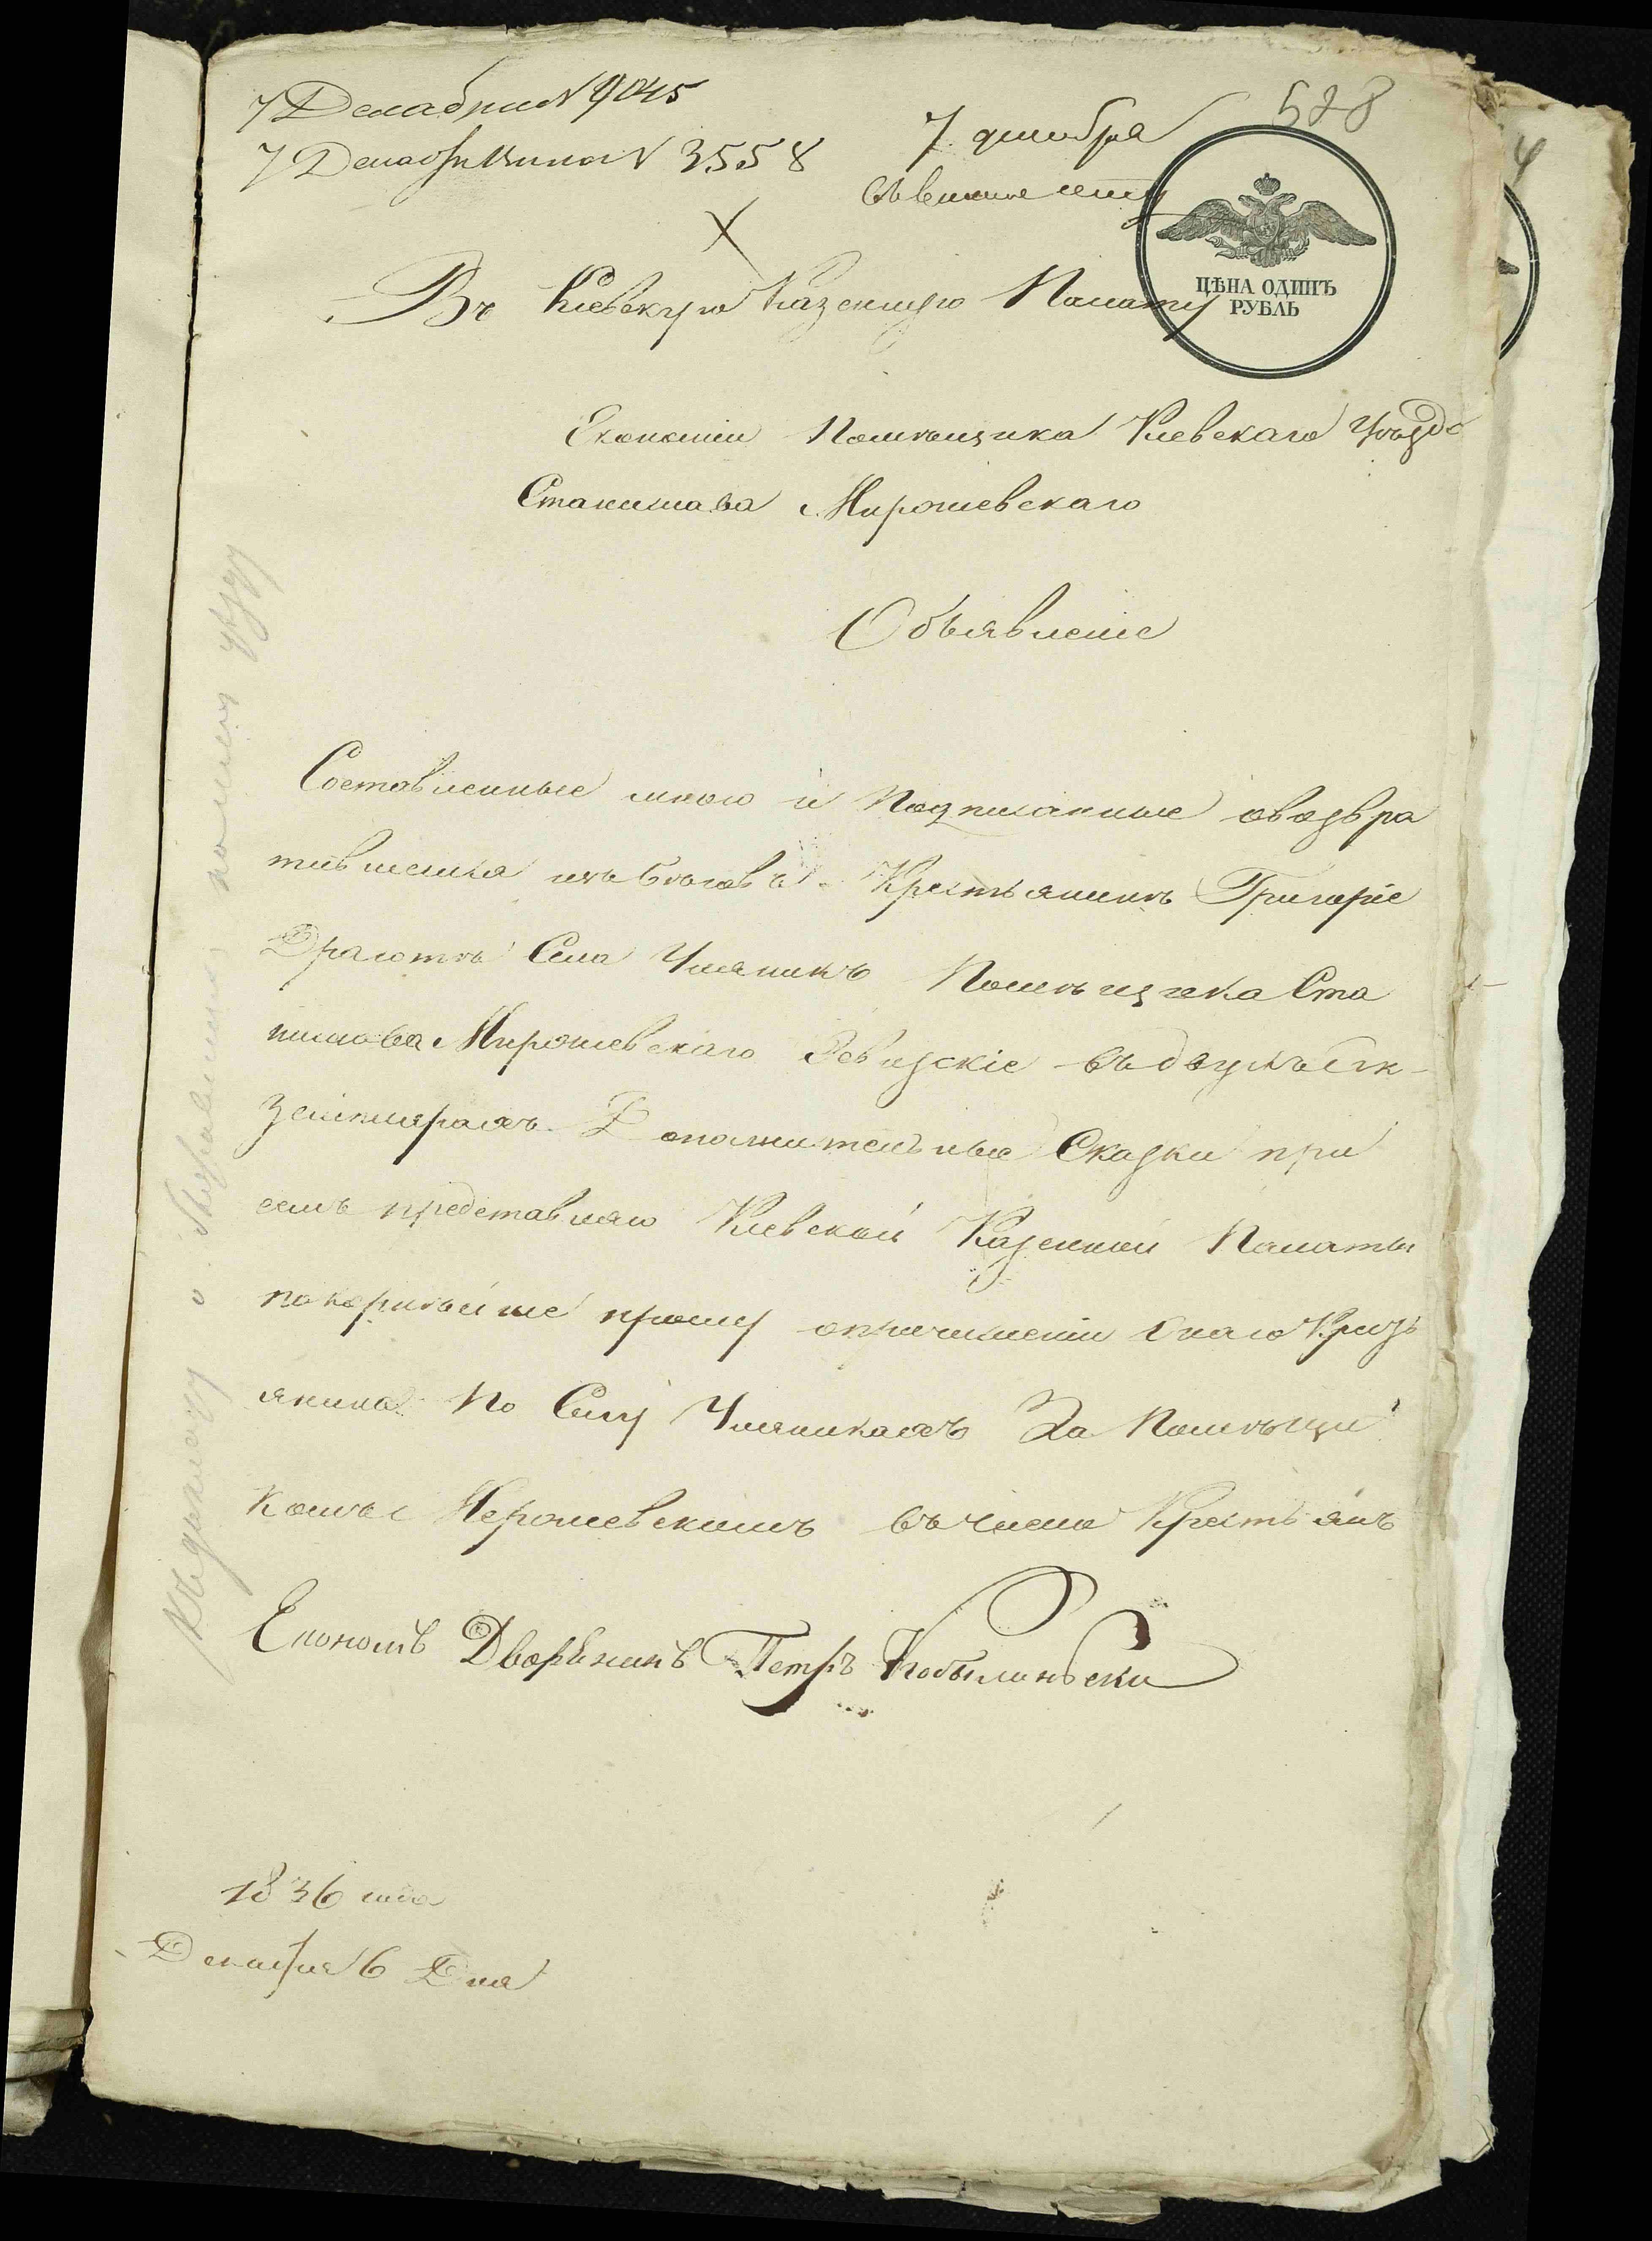 7 Декабря N 9045
7 Декабря N 3558
7 декабря
528
ЦѢНА ОДИНЪ
РУБЛЬ
Въ Киевскую Казенную Палату
Економіи Помѣщика Киевскаго уѣзда
Станислава Мирошевскаго
Объявленіе
Составленные мною и Подписанные овозвра
тившемся изъ бѣговъ Крестьянинѣ Григоріе
Села Помѣщика Ста
нислава Мирошевскаго Ревизскіе въ двухъ Ек-
земплярахъ Дополнительные Сказки при
семъ представляю Киевской Казенной Палаты
покорнѣйше прошу опричисленіи Онаго Крезть
янина По Селу За Помѣщи
комъ Мерошевскимъ въ число Крестьянъ
Економъ Дворянинъ Петръ Кобылиньски
1836 года
Декабря 6 Дня